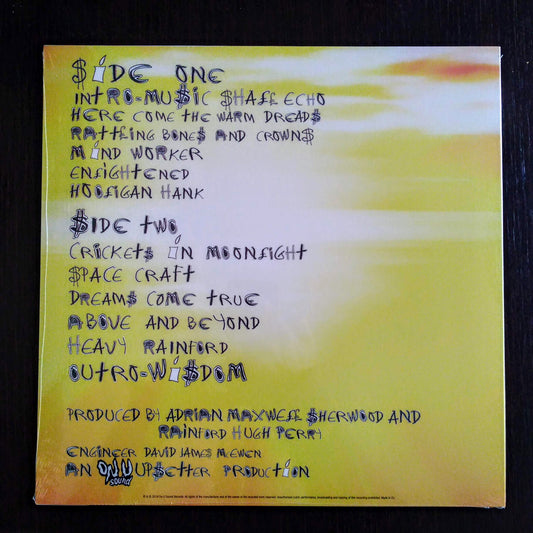 $iDE ONE
INTRO-MU$iC $HALL ECHO
HERE COME THE WARM DREAD$
RATTLING BONE$ AND CROWN$
MiND WORKER
ENLiGHTENED
HOOLiGAN HANK
$IDE TWO
CRiCKET$ iN MOONLiGHT
$PACE CRAFT
DREAM$ COME TRUE
ABOVE AND BEYOND
HEAVY RAiNFORD
OUTRO-Wi$DOM
PRODUCED BY ADRIAN MAXWELL $HERWOOD AND
RAINFORD HUGH PERRY
ENGiNEER DAViD JAMES McEWEN
AN ON.U Sound UP$ETTER PRODUCTiON